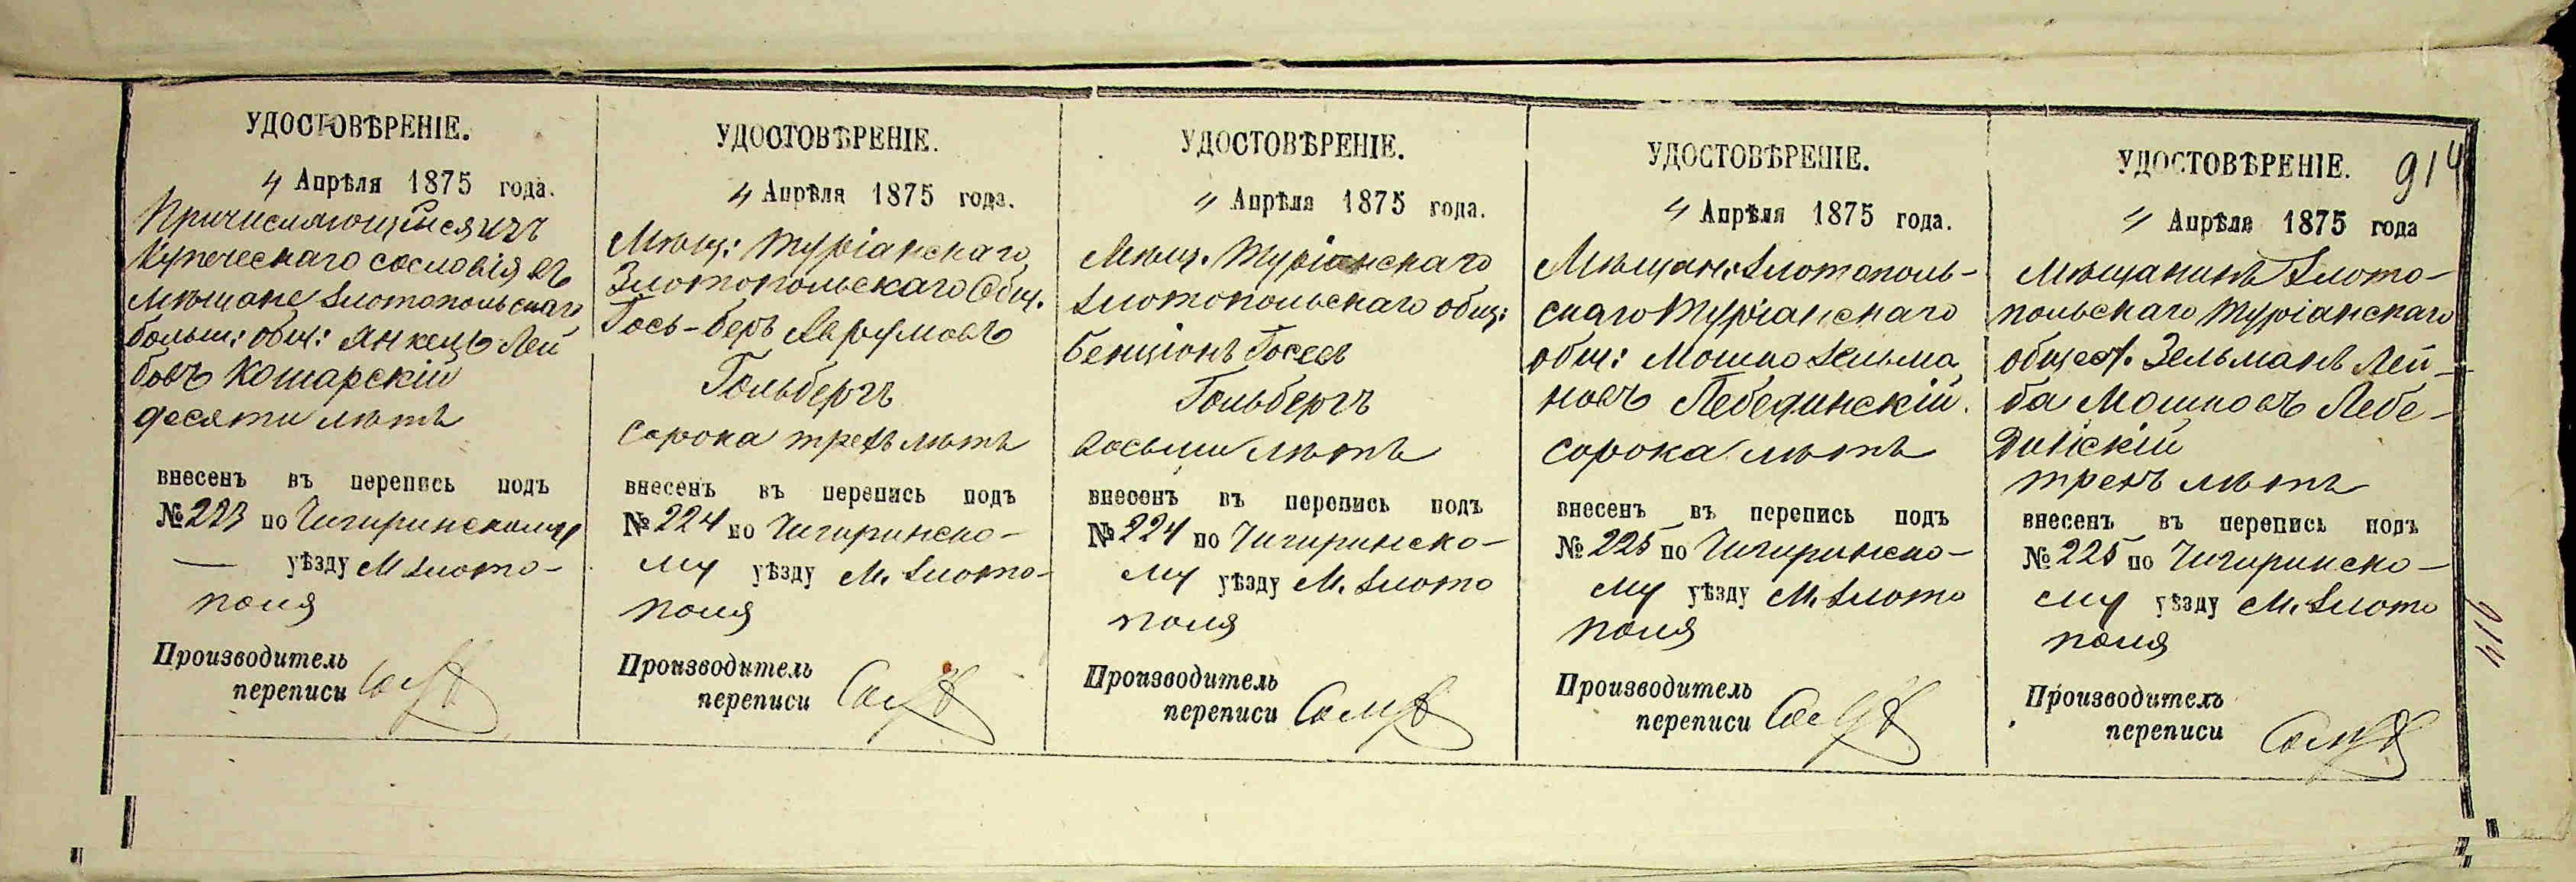 УДОСТОВѢРЕНІЕ.
4 Апрѣля 1875 года.
Причисляющійся изъ
Купеческаго сословія въ
Мѣщане Златопольскаго
больш: общ: Янкель Лей
бовъ Кошарскій
десяти лѣтъ
внесенъ въ перепись подъ
№ 223 по Чигиринскому
— уѣзду М Злото-
поля
Производитель
переписи
УДОСТОВѢРЕНІЕ.
4 Апрѣля 1875 года.
Мѣщ: Туріанскаго
Злотопольскаго Общ.
Гось-беръ Аврумовъ
Гольбергъ
сорока трехъ лѣтъ
внесенъ въ перепись подъ
№ 224 по Чигиринско-
му уѣзду М. Злото-
поля
Производитель
переписи
УДОСТОВѢРЕНІЕ.
4 Апрѣля 1875 года.
Мѣщ. Туріанскаго
Злотопольскаго общ:
Бенціонъ Госевъ
Гольбергъ
восьми лѣтъ
внесенъ въ перепись подъ
№ 224 по Чигиринско-
му уѣзду М. Злото
поля
Производитель
переписи
УДОСТОВѢРЕНІЕ.
4 Апрѣля 1875 года.
Мѣщан: Злотополь-
скаго Туріанскаго
общ: Мошко Зельма
новъ Лебединскій.
сорока лѣтъ
внесенъ въ перепись подъ
№ 225 по Чигиринско-
му уѣзду М. Злото
поля
Производитель
переписи
УДОСТОВѢРЕНІЕ. 914
4 Апрѣля 1875 года
Мѣщанинъ Злото-
польскаго Туріанскаго
общест. Зельманъ Лей-
ба Мошковъ Лебе-
динскій
трехъ лѣтъ
внесенъ въ перепись подъ
№ 225 по Чигиринско-
му уѣзду М. Злото
поля
Производитель
переписи